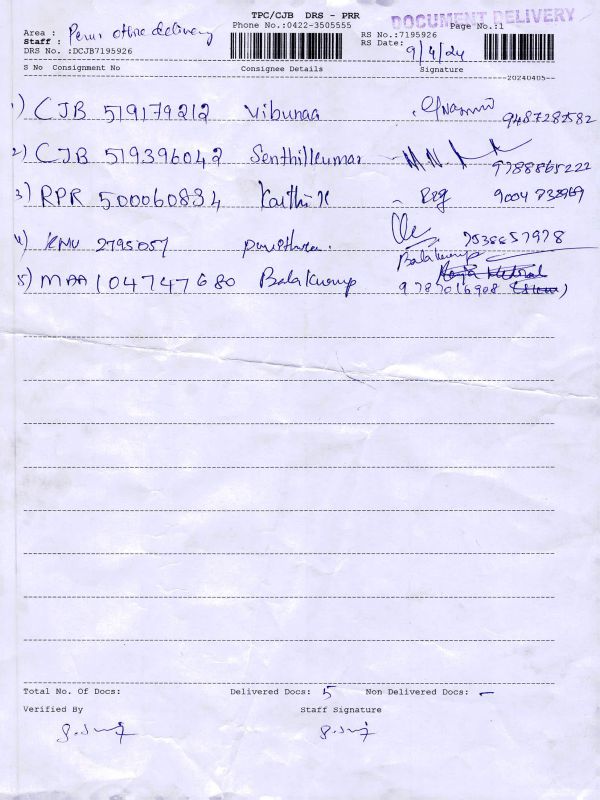 TPC/CJB DRS - PRR
DOCUMENT DELIVERY
Area : Perur office delivery
Phone No.:0422-3505555
Page No.:1
Staff :
RS No.:7195926
DRS No. :DCJB7195926
RS Date: 9/4/24
S No Consignment No Consignee Details Signature
20240405
1) CJB 519179212 Vibunaa 9487282582
2) CJB 519396042 Senthilkumar 9788865222
3) RPR 500060834 Karthi K 9004
4) KMU 2795057
5) MAA 104747680 Bala Kump Balakump 9787016908
Total No. Of Docs: Delivered Docs: 5 Non Delivered Docs: -
Verified By Staff Signature